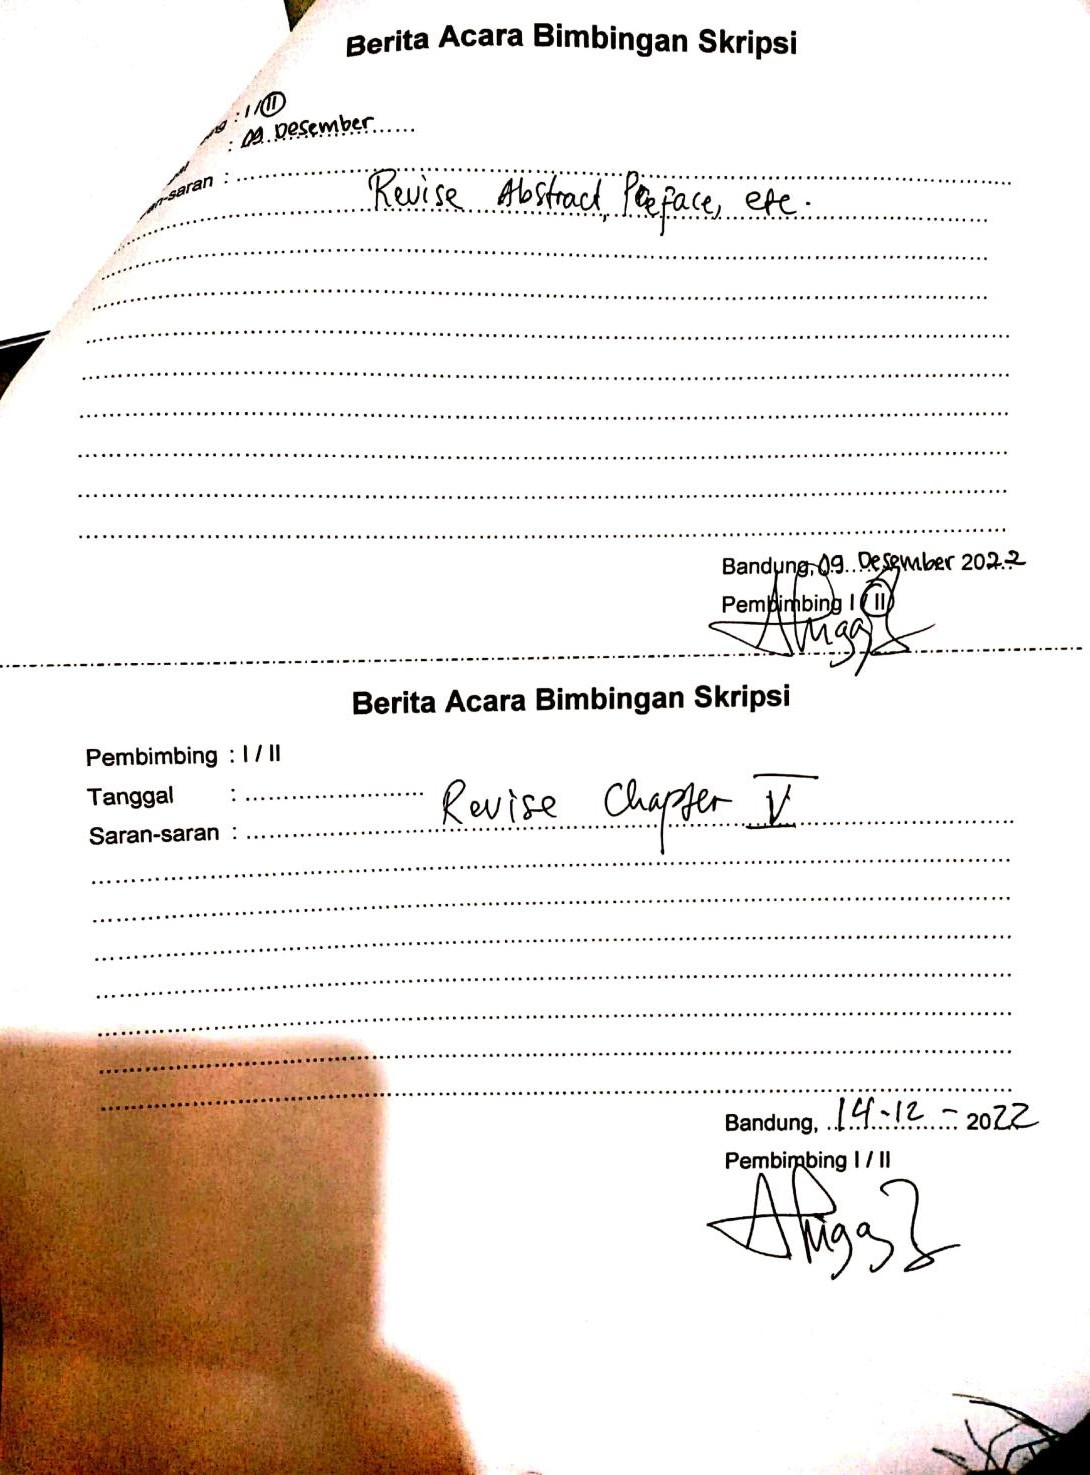 Berita Acara Bimbingan Skripsi
: I / II
: 09 Desember
-saran :
Revise Abstract, Preface, etc.
Bandung, 09 Desember 2022
Pembimbing I / II
Berita Acara Bimbingan Skripsi
Pembimbing : I / II
Tanggal :
Saran-saran : Revise Chapter V
Bandung, 14-12-2022
Pembimbing I / II